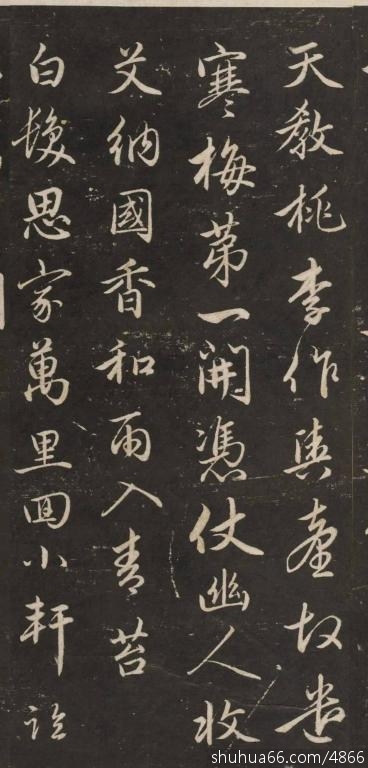 天教桃李作輿臺故遣
寒梅第一開憑仗幽人收
艾納國香和雨入青苔
白髮思家萬里回小軒臨
shuhua66.com/4866